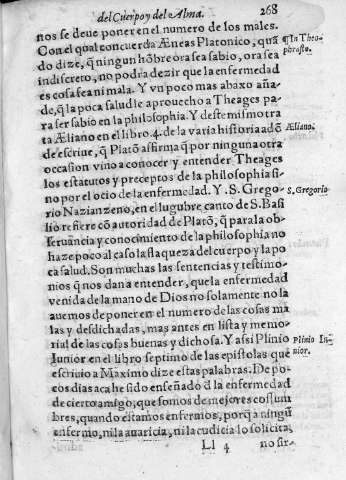 del Cuerpo y del Alma. 268
nos se deue poner en el numero de los males.
Con el qual concuerda Æneas Platonico, quā
do dize, q̄ ningun hōbre ora sea sabio, ora sea
indiscreto, no podra dezir que la enfermedad
es cosa fea ni mala. Y vn poco mas abaxo aña-
de, q̄ la poca salud le aprouecho a Theages pa-
ra ser sabio en la philosophia. Y deste mismo tra
ta Æliano en el libro. 4. de la varia historia adō
de escriue, q̄ Platō affirma q̄ por ninguna otra
occasion vino a conocer y entender Theages
los estatutos y preceptos de la philosophia si-
no por el ocio de la enfermedad. Y S. Grego-
rio Nazianzeno, en el lugubre canto de S. Basi
lio refiere cō autoridad de Platō, q̄ para la ob-
seruancia y conocimiento de la philosophia no
haze poco al caso la flaqueza del cuerpo y la po
ca salud. Son muchas las sentencias y testimo-
nios q̄ nos dan a entender, que la enfermedad
venida de la mano de Dios no solamente no la
auemos de poner en el numero de las cosas ma
las y desdichadas, mas antes en lista y memo-
rial de las cosas buenas y dichosa. Y assi Plinio
Iunior en el libro septimo de las epistolas que
escriuio a Maximo dize estas palabras. De po-
cos dias aca he sido enseñado d̄ la enfermedad
de cierto amigo, que somos de mejores costum
bres, quando estamos enfermos, porq̄ a ningū
enfermo, ni la auaricia, ni la cudicia lo solicita,
Ll 4 no sir-
¶ In Theo
phrasto.
Æliano.
S. Gregorio
Plinio Iu-
nior.